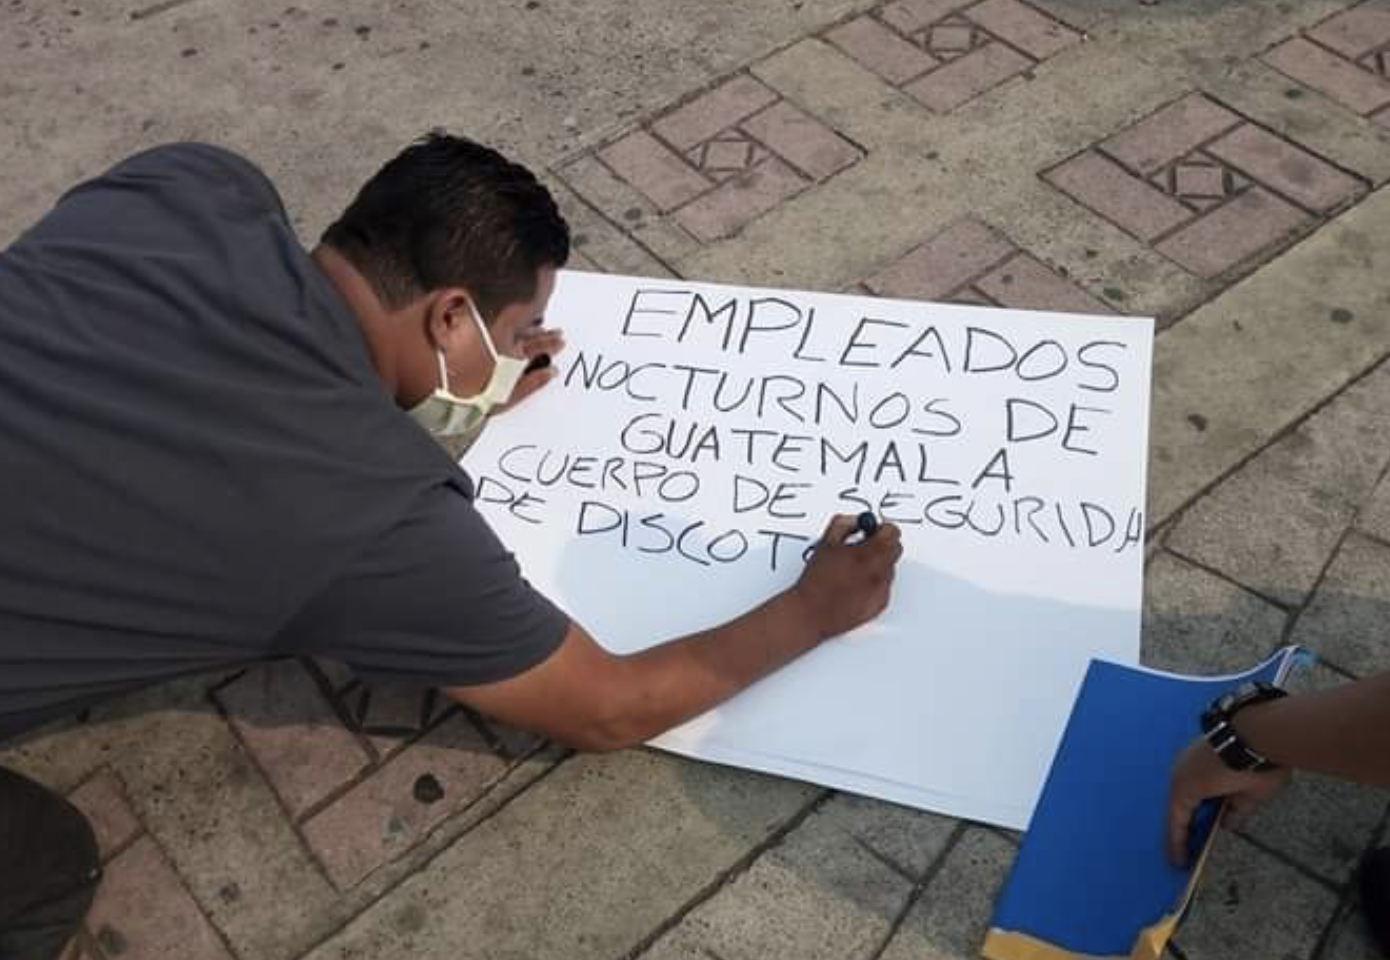 EMPLEADOS
NOCTURNOS DE
GUATEMALA
CUERPO DE SEGURIDA
DE DISCOT